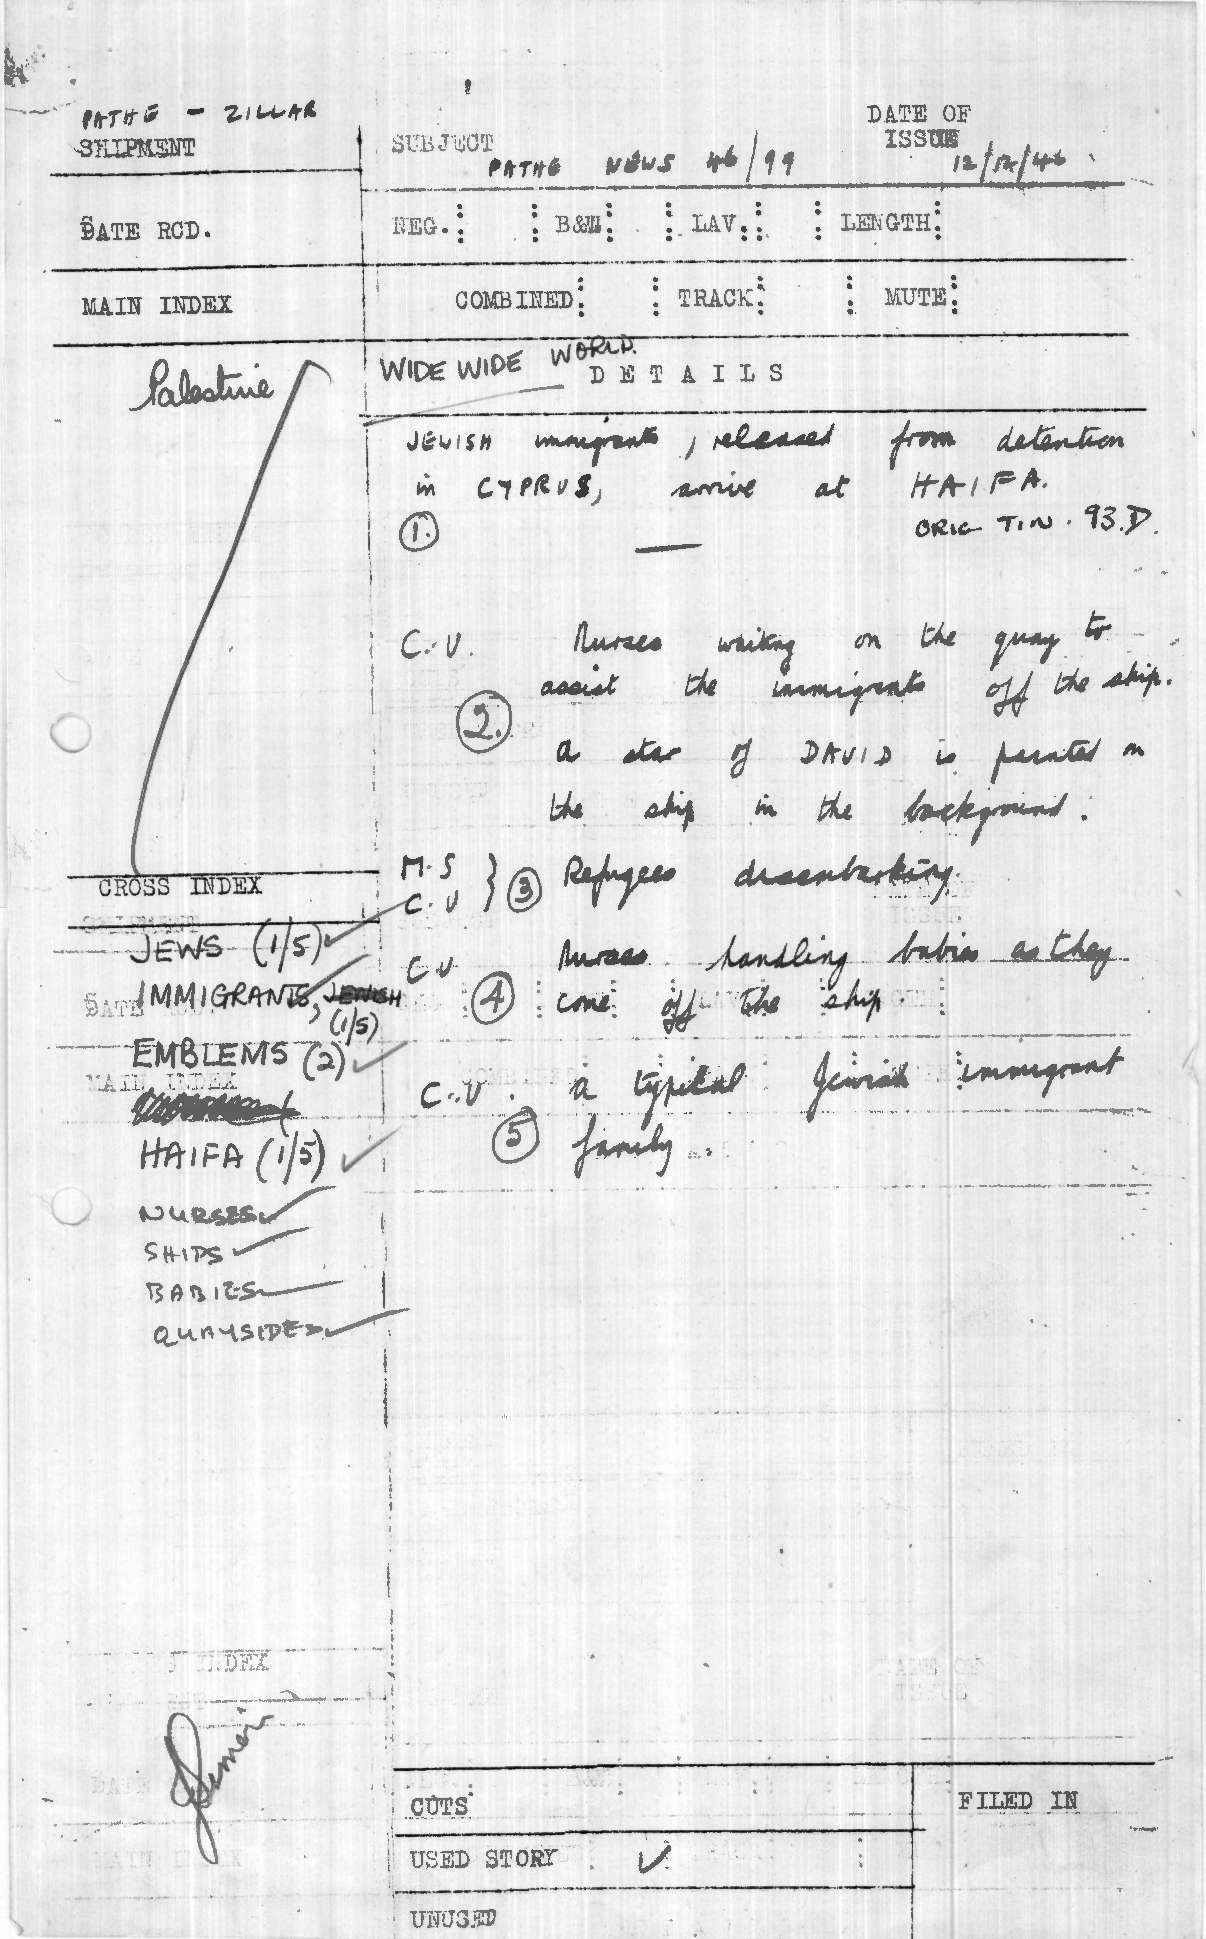 PATHE - ZILLAR
SHIPMENT
SUBJECT
PATHE NEWS 46/99
DATE OF
ISSUE
12/12/46
DATE RCD.
NEG. B&W LAV. LENGTH
MAIN INDEX
COMBINED TRACK MUTE
Palestine
WIDE WIDE WORLD.
DETAILS
JEWISH immigrants, released from detention
in CYPRUS, arrive at HAIFA.
1. ORIG TIN. 93.D.
C.U. Nurses waiting on the quay to
assist the immigrants off the ship.
2.
a star of DAVID is painted on
the ship in the background.
M.S
C.U } 3 Refugees disembarking.
C.U Nurses handling babies as they
4 come off the ship
C.U. a typical Jewish immigrant
5 family.
CROSS INDEX
JEWS (1/5)
IMMIGRANTS, JEWISH
(1/5)
EMBLEMS (2)
HAIFA (1/5)
NURSES
SHIPS
BABIES
QUAYSIDES
CUTS
FILED IN
USED STORY ✓
UNUSED